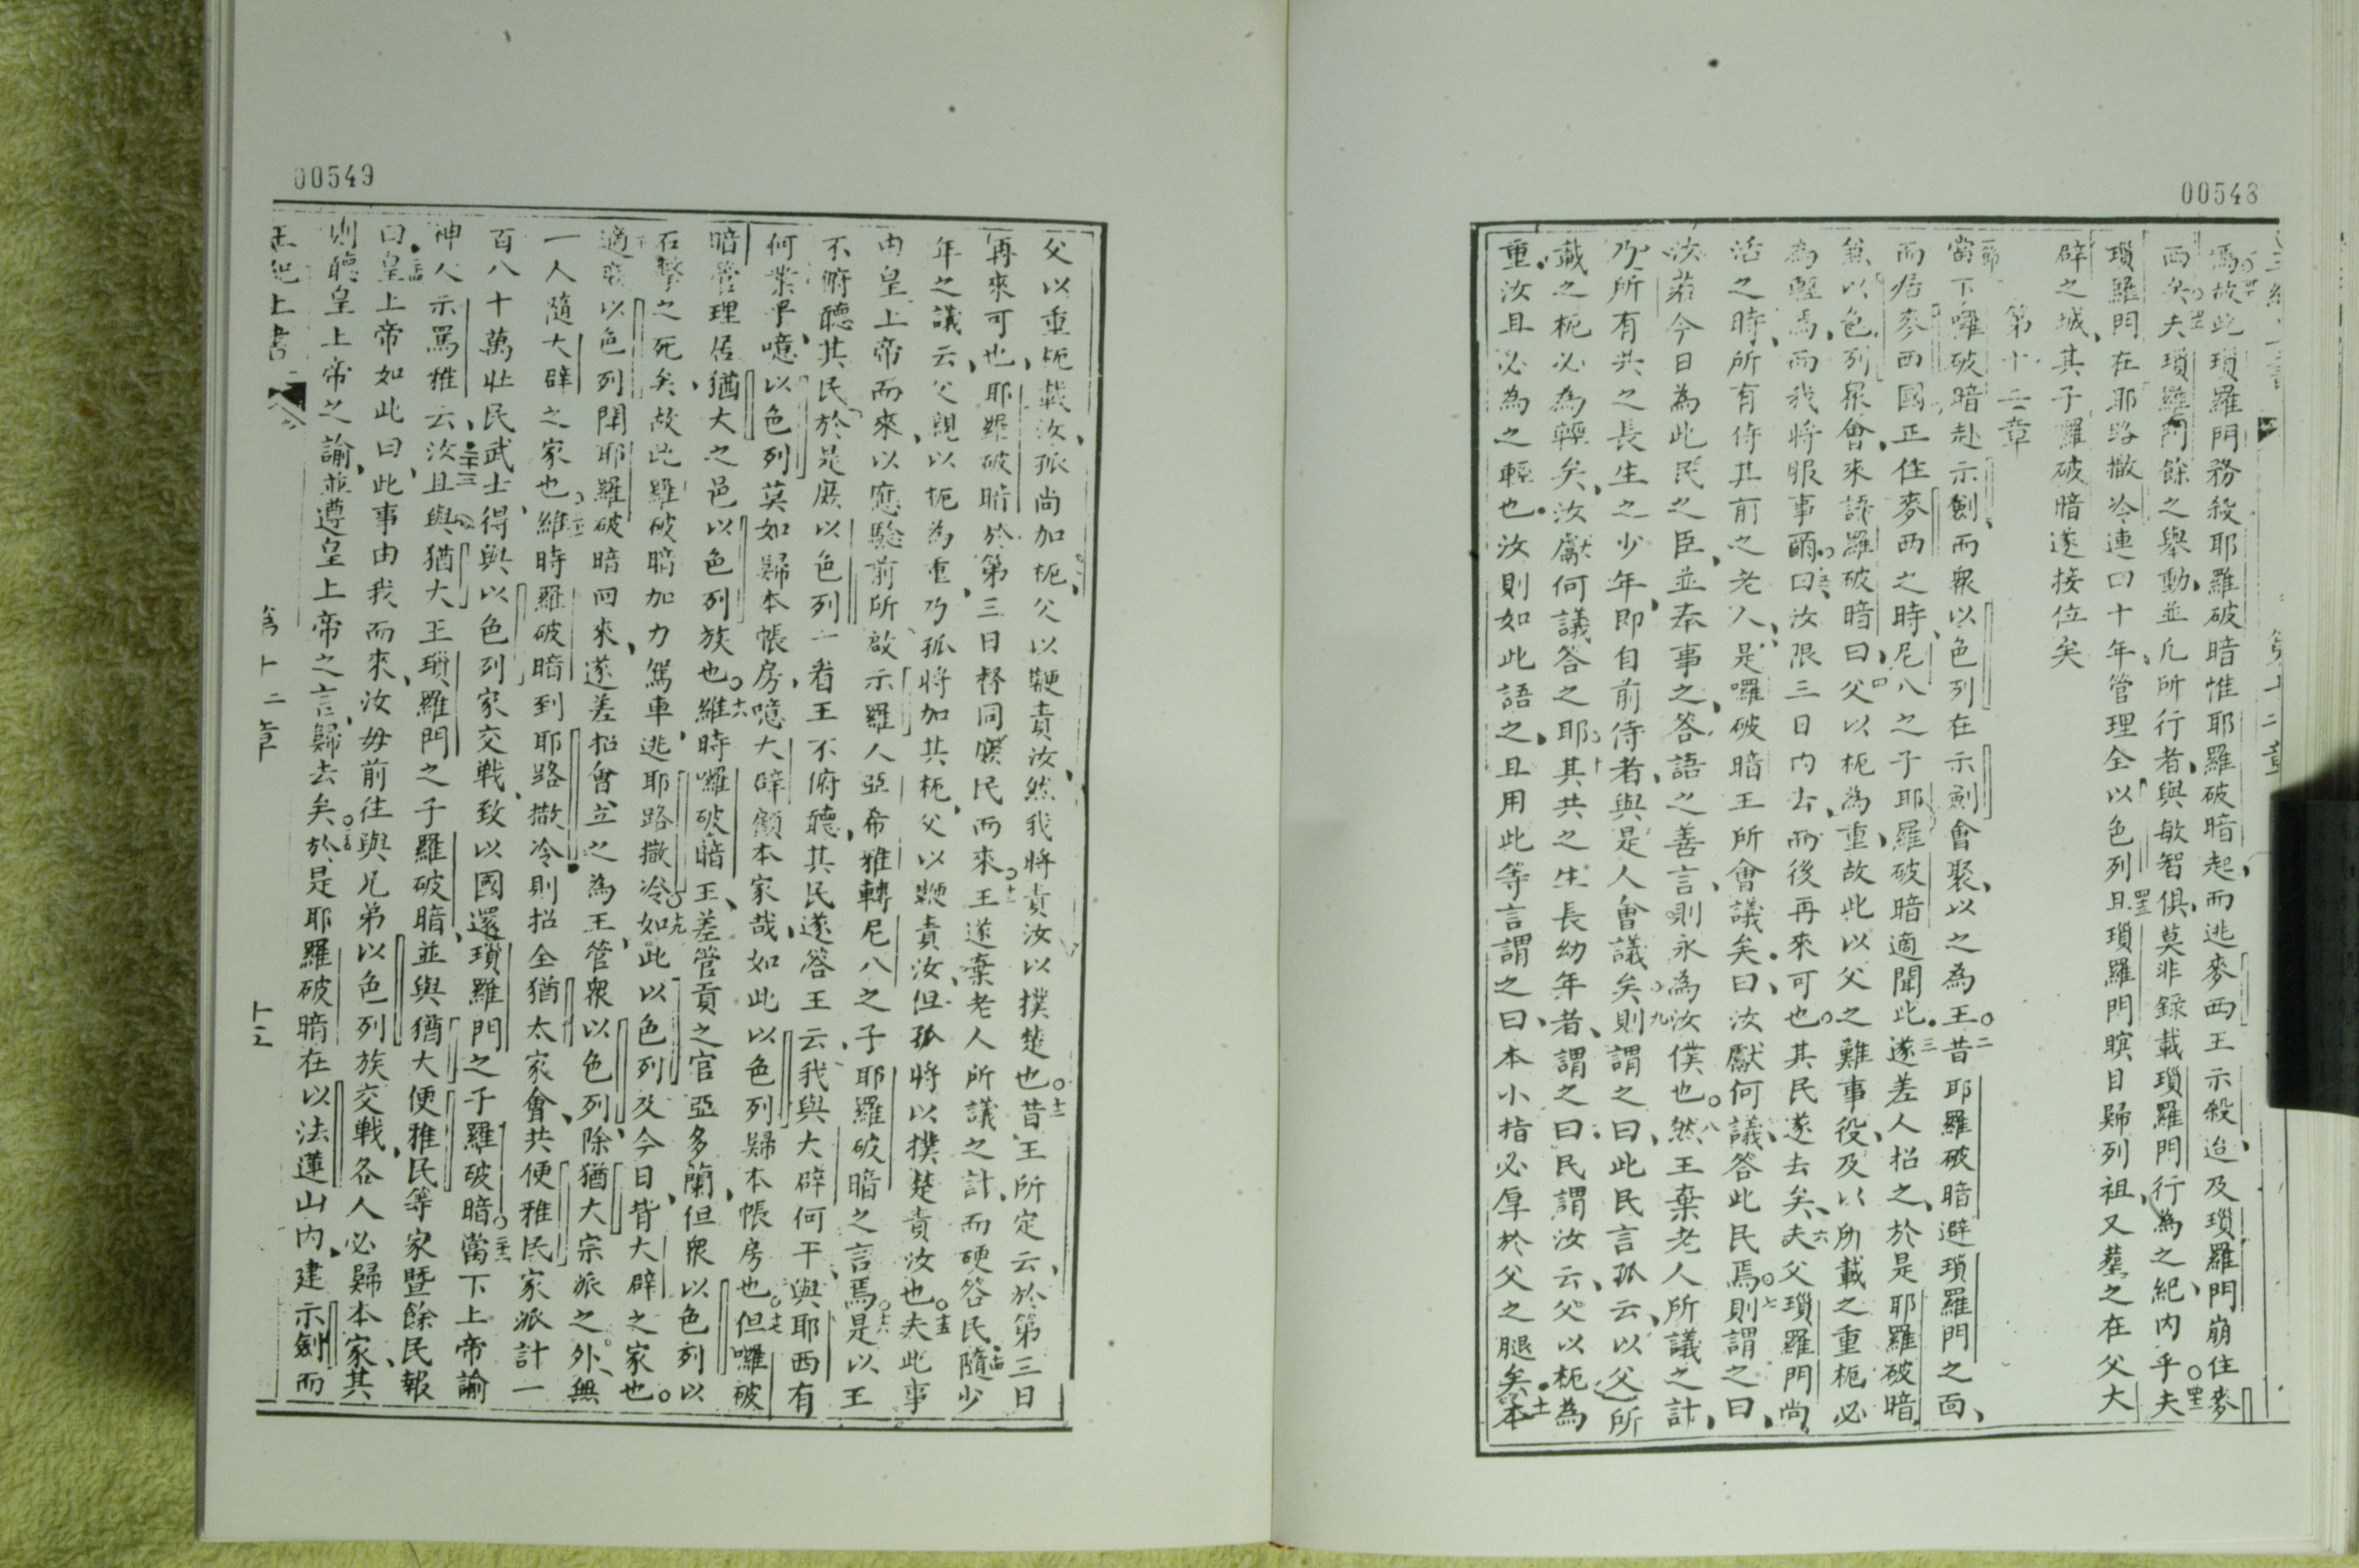 00548
焉故此瑣羅門務殺耶羅破暗惟耶羅破暗起而逃麥西王示殺迨及瑣羅門崩住麥
西矣夫瑣羅門餘之舉動並凡所行者與敏智俱莫非錄載瑣羅門行為之紀內乎夫
瑣羅門在耶路撒冷連四十年管理全以色列且瑣羅門瞑目歸列祖又葬之在父大
辟之城其子羅破暗遂接位矣
第十二章
當下囉破暗赴示劍而衆以色列在示劍會聚以之為王二昔耶羅破暗避瑣羅門之面
而居麥西國正住麥西之時尼八之子耶羅破暗適聞此三遂差人招之於是耶羅破暗
並以色列衆會來語羅破暗曰四父以軛為重故此以父之難事役及以所載之重軛必
為輕焉而我將服事爾五曰汝限三日內去而後再來可也其民遂去矣六夫父瑣羅門尚
活之時所有侍其前之老人是囉破暗王所會議矣曰汝獻何議答此民焉七則謂之曰
汝若今日為此民之臣並奉事之答語之善言則永為汝僕也八然王棄老人所議之計
乃所有共之長生之少年即自前侍者與是人會議矣九則謂之曰此民言孤云以父所
載之軛必為輕矣汝獻何議答之十耶其共之生長幼年者謂之曰民謂汝云父以軛為
重汝且必為之輕也汝則如此語之且用此等言謂之曰本小指必厚於父之腿矣十一本
00549
父以重軛載汝孤尚加軛父以鞭責汝然我將責汝以撲楚也十二昔王所定云於第三日
再來可也耶羅破暗於第三日督同厥民而來十三王遂棄老人所議之計而硬答民十四隨少
年之議云父親以軛為重乃孤將加其軛父以鞭責汝但孤將以撲楚責汝也十五夫此事
由皇上帝而來以應驗前所啟示羅人亞希雅轉尼八之子耶羅破暗之言焉十六是以王
不俯聽其民於是厥以色列一看王不俯聽其民遂答王云我與大辟何干與耶西有
何業乎噫以色列莫如歸本帳房噫大辟顧本家哉如此以色列歸本帳房也十七但囉破
暗管理居猶大之邑以色列族也十八維時囉破暗王差管貢之官亞多蘭但衆以色列以
石擊之死矣故此羅破暗加力駕車逃耶路撒冷十九如此以色列及今日背大辟之家也
適衆以色列聞耶羅破暗回來遂差招會立之為王管衆以色列除猶大宗派之外無
一人隨大辟之家也維時羅破暗到耶路撒冷則招全猶太家會共便雅民家派計一
百八十萬壯民武士得與以色列家交戰致以國還瑣羅門之子羅破暗當下上帝諭
神人示罵雅云二十三汝且與猶大王瑣羅門之子羅破暗並與猶大便雅民等家暨餘民報
曰皇上帝如此曰此事由我而來汝毋前往與兄弟以色列族交戰各人必歸本家其
則聽皇上帝之諭並遵皇上帝之言歸去矣於是耶羅破暗在以法蓮山內建示劍而
王紀上書 第十二章